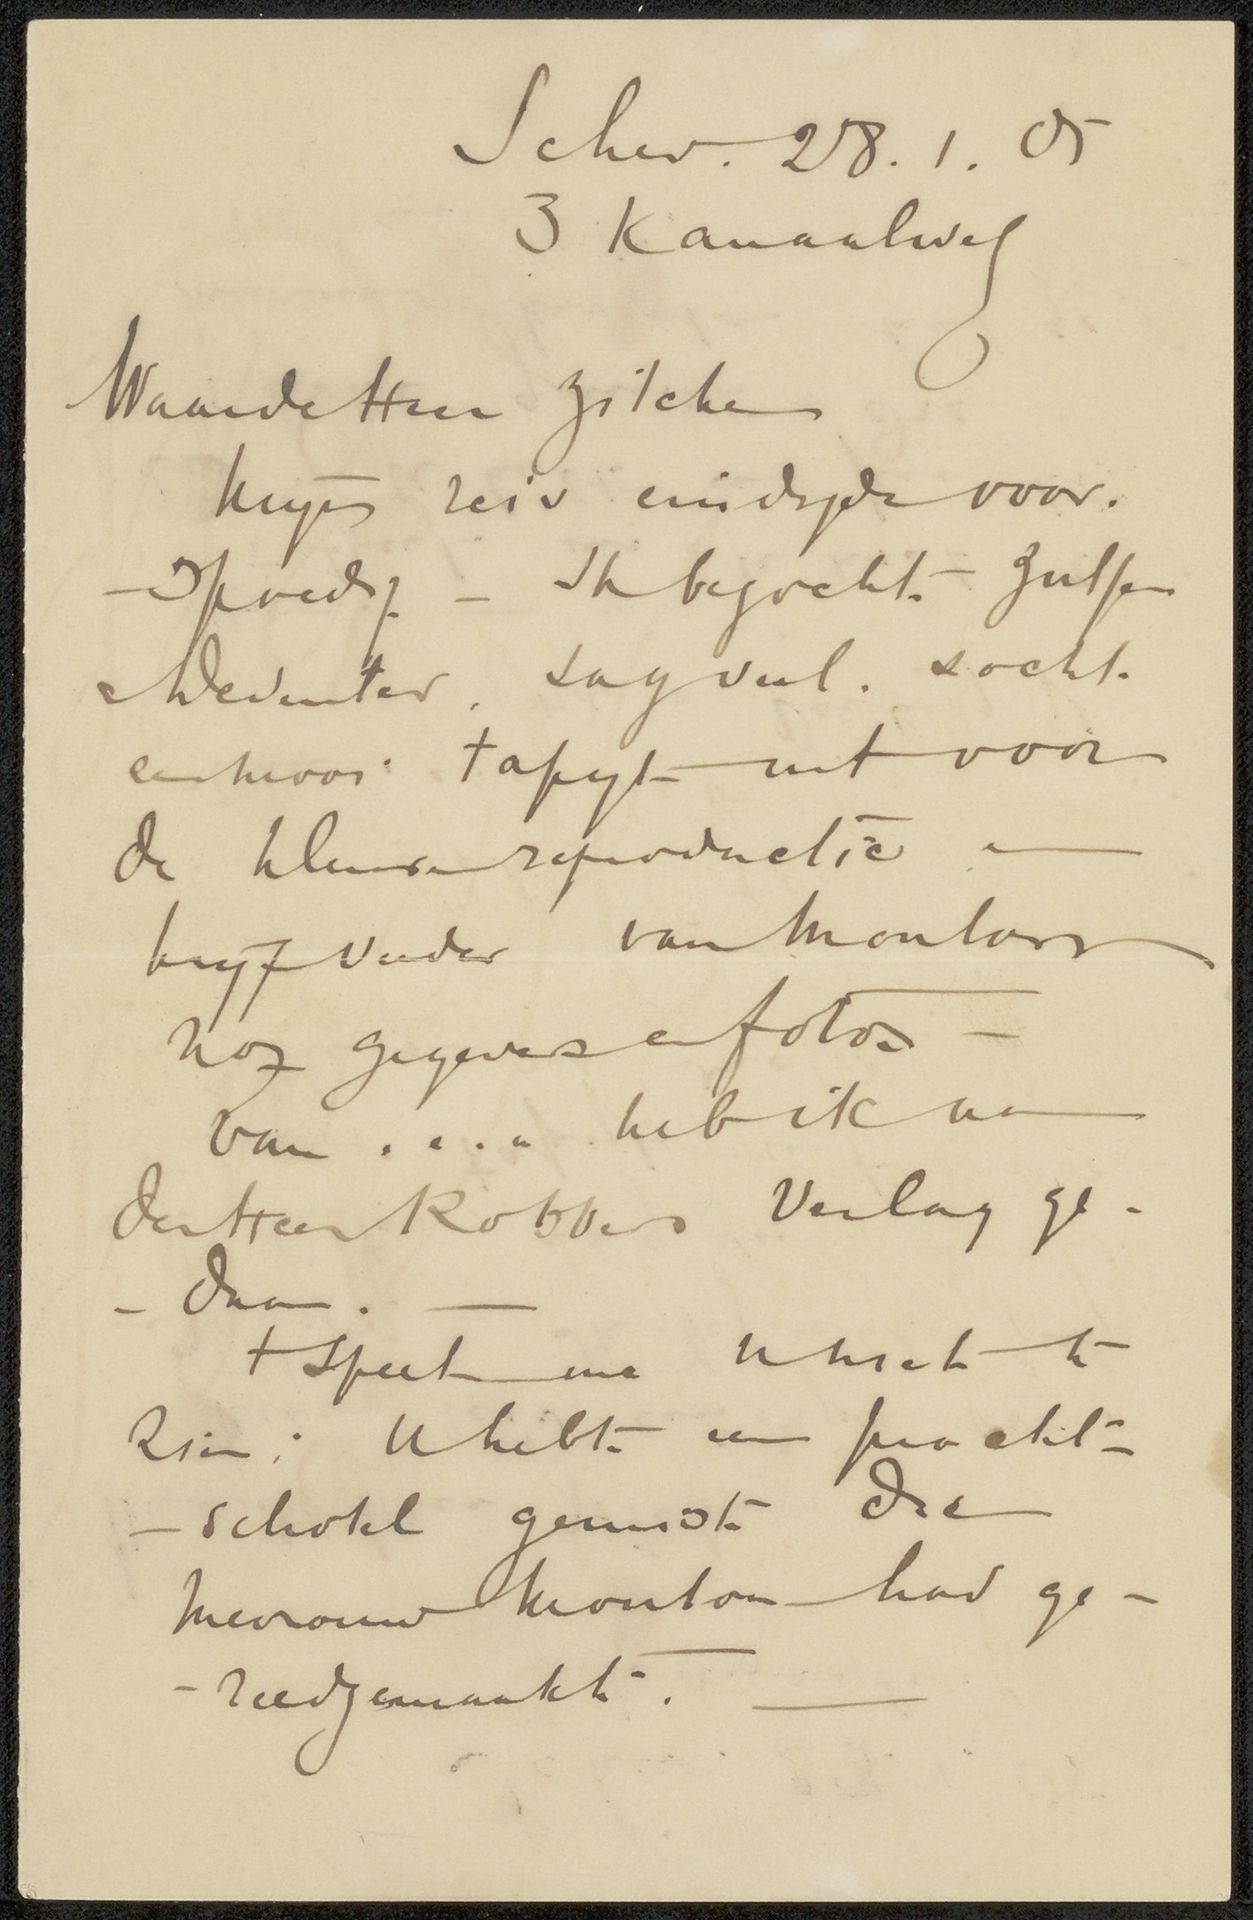 Schev. 28.1.05
3 Kanaalweg
Waarde Heer Zilcken
reis eindigde voor.
-spoedig - Ik bezocht Zutfen
en Deventer, zag veel. zocht
een mooi tapyt uit voor
de kleurenreproductie en
kryg verder van Mouton
nog gegevens en fotos -
Van .... heb ik aan
den Heer Robbers verslag ge-
- daan. —
t Speet me U niet te
zien: U hebt een pracht-
- schotel gemist die
Mevrouw Mouton had ge-
- reedgemaakt. —